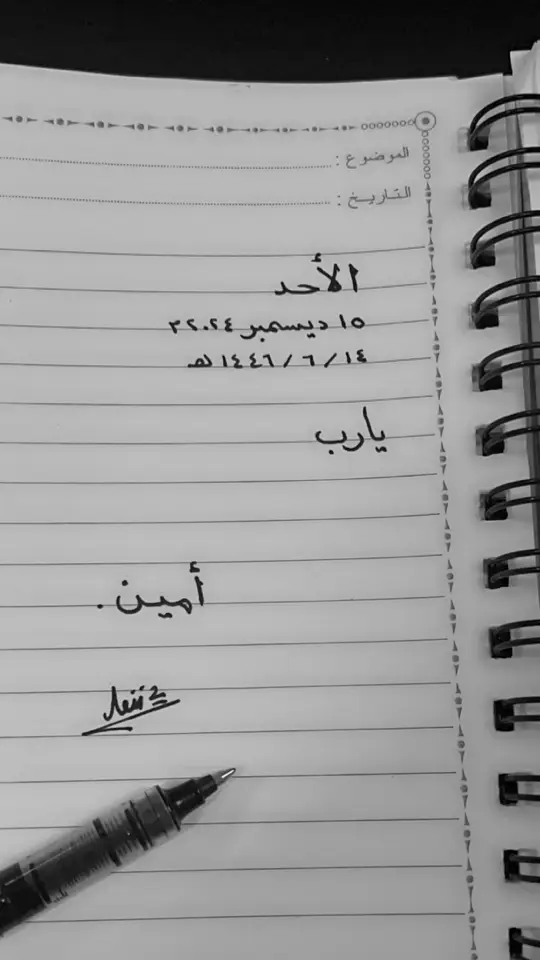 الموضوع :
التاريخ :
الأحد
١٥ ديسمبر ٢٠٢٤م
١٤ / ٦ / ١٤٤٦ هـ
يارب
أمين .